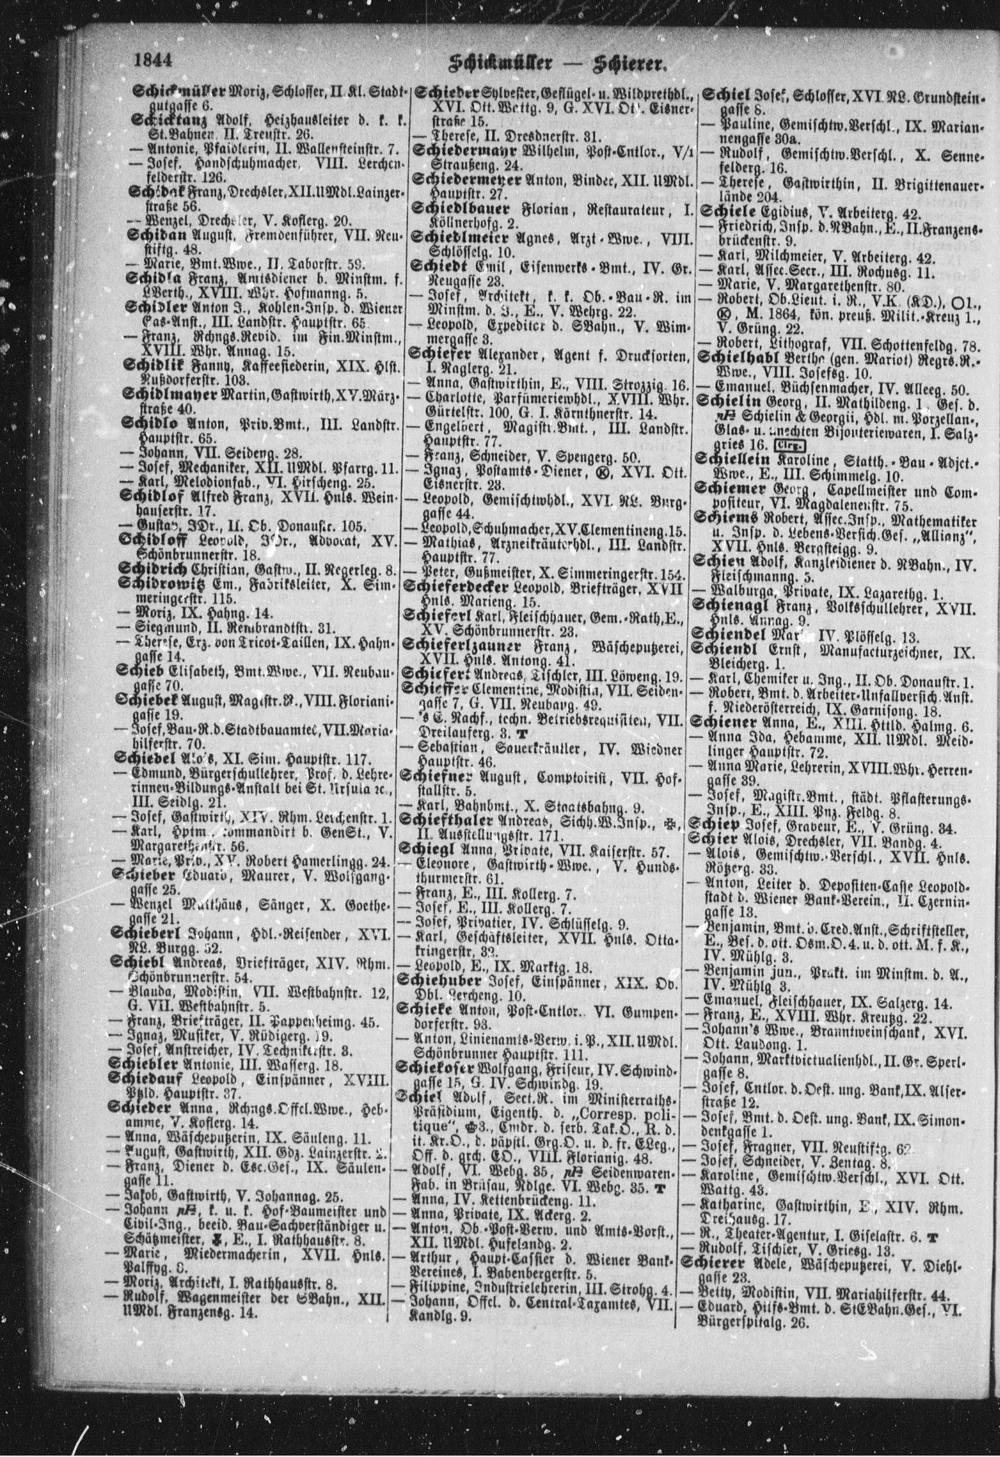 1844
Schickmüller — Schierer.
Schickmüller Moriz, Schlosser, II. Kl. Stadt-
gutgasse 6.
Schicktanz Adolf, Heizhausleiter d. k. k.
St.Bahnen, II. Treustr. 26.
— Antonie, Pfaidlerin, II. Wallensteinstr. 7.
— Josef, Handschuhmacher, VIII. Lerchen-
felderstr. 126.
Franz, Drechsler, XII. UMdl. Lainzer-
straße 56.
— Wenzel, Drechsler, V. Koflerg. 20.
Schidan August, Fremdenführer, VII. Neu-
stiftg. 48.
— Marie, Bmt.Wwe., II. Taborstr. 59.
Schidla Franz, Amtsdiener b. Minstm. f.
LVerth., XVIII. Whr. Hofmanng. 5.
Schidler Anton J., Kohlen-Insp. d. Wiener
Gas-Anst., III. Landstr. Hauptstr. 65.
— Franz, Rchngs.Revid. im Fin.Minstm.,
XVIII. Whr. Annag. 15.
Schidlik Fanny, Kaffeesiederin, XIX. Hlst.
Nußdorferstr. 103.
Schidlmayer Martin, Gastwirth, XV. März-
straße 40.
Schidlo Anton, Priv.Bmt., III. Landstr.
Hauptstr. 65.
— Johann, VII. Seideng. 28.
— Josef, Mechaniker, XII. UMdl. Pfarrg. 11.
— Karl, Melodionfab., VI. Hirscheng. 25.
Schidlof Alfred Franz, XVII. Hnls. Wein-
hauserstr. 17.
— Gustav, JDr., II. Ob. Donaustr. 105.
Schidloff Leopold, JDr., Advocat, XV.
Schönbrunnerstr. 18.
Schidrich Christian, Gastw., II. Negerleg. 8.
Schidrowitz Em., Fabriksleiter, X. Sim-
meringerstr. 115.
— Moriz, IX. Hahng. 14.
— Siegmund, II. Rembrandtstr. 31.
— Therese, Erz. von Tricot-Taillen, IX. Hahn-
gasse 14.
Schieb Elisabeth, Bmt.Wwe., VII. Neubau-
gasse 70.
Schiebek August, VIII. Floriani-
gasse 19.
— Josef, Bau-R. d. Stadtbauamtes, VII. Maria-
hilferstr. 70.
Schiebel Alois, XI. Sim. Hauptstr. 117.
— Edmund, Bürgerschullehrer, Prof. d. Lehre-
rinnen-Bildungs-Anstalt bei St. Ursula ꝛc.,
III. Seidlg. 21.
— Josef, Gastwirth, XIV. Rhm. Leichenstr. 1.
— Karl, Hptm., commandirt b. GenSt., V.
Margarethenstr. 56.
— Marie, Priv., XV. Robert Hamerlingg. 24.
Schieber Eduard, Maurer, V. Wolfgang-
gasse 25.
— Wenzel Matthäus, Sänger, X. Goethe-
gasse 21.
Schieberl Johann, Hdl.-Reisender, XVI.
NL. Burgg. 52.
Schiebl Andreas, Briefträger, XIV. Rhm.
Schönbrunnerstr. 54.
— Blanda, Modistin, VII. Westbahnstr. 12,
G. VII. Westbahnstr. 5.
— Franz, Briefträger, II. Pappenheimg. 45.
— Ignaz, Musiker, V. Rüdigerg. 19.
— Josef, Anstreicher, IV. Technikerstr. 3.
Schiebler Antonie, III. Wasserg. 18.
Schiedauf Leopold, Einspänner, XVIII.
Ptzld. Hauptstr. 37.
Schieder Anna, Rchngs.Offcl.Wwe., Heb-
amme, V. Koflerg. 14.
— Anna, Wäscheputzerin, IX. Säuleng. 11.
— August, Gastwirth, XII. Gdz. Lainzerstr. 2.
— Franz, Diener d. Esc.Ges., IX. Säulen-
gasse 11.
— Jakob, Gastwirth, V. Johannag. 25.
— Johann, k. u. k. Hof-Baumeister und
Civil-Ing., beeid. Bau-Sachverständiger u.
Schätzmeister, E., I. Rathhausstr. 8.
— Marie, Miedermacherin, XVII. Hnls.
Palffyg. 8.
— Moriz, Architekt, I. Rathhausstr. 8.
— Rudolf, Wagenmeister der SBahn., XII.
UMdl. Franzensg. 14.
Schieder Sylvester, Geflügel- u. Wildprethdl.,
XVI. Ott. Wattg. 9, G. XVI. Ott. Eisner-
straße 15.
— Therese, II. Dresdnerstr. 31.
Schiedermayr Wilhelm, Post-Cntlor., V/1
Straußeng. 24.
Schiedermeyer Anton, Binder, XII. UMdl.
Hauptstr. 27.
Schiedlbauer Florian, Restaurateur, I.
Köllnerhofg. 2.
Schiedlmeier Agnes, Arzt-Wwe., VIII.
Schlösselg. 10.
Schiedt Emil, Eisenwerks-Bmt., IV. Gr.
Neugasse 23.
— Josef, Architekt, k. k. Ob.-Bau-R. im
Minstm. d. J., E., V. Wehrg. 22.
— Leopold, Expeditor d. SBahn., V. Wim-
mergasse 3.
Schiefer Alexander, Agent f. Drucksorten,
I. Naglerg. 21.
— Anna, Gastwirthin, E., VIII. Strozzig. 16.
— Charlotte, Parfümeriewhdl., XVIII. Whr.
Gürtelstr. 100, G. I. Kärnthnerstr. 14.
— Engelbert, Magistr.Bmt., III. Landstr.
Hauptstr. 77.
— Franz, Schneider, V. Spengerg. 50.
— Ignaz, Postamts-Diener, Ⓚ, XVI. Ott.
Eisnerstr. 23.
— Leopold, Gemischtwhdl., XVI. NL. Burg-
gasse 44.
— Leopold, Schuhmacher, XV. Clementineng. 15.
— Mathias, Arzneikräuterhdl., III. Landstr.
Hauptstr. 77.
— Peter, Gußmeister, X. Simmeringerstr. 154.
Schieferdecker Leopold, Briefträger, XVII
Hnls. Marieng. 15.
Schieferl Karl, Fleischhauer, Gem.-Rath, E.,
XV. Schönbrunnerstr. 23.
Schieferlzauner Franz, Wäscheputzerei,
XVII. Hnls. Antong. 41.
Andreas, Tischler, III. Löweng. 19.
Schieffer Clementine, Modistin, VII. Seiden-
gasse 7, G. VII. Neubaug. 49.
— 's C. Nachf., techn. Betriebsrequisiten, VII.
Dreilauferg. 3. T
— Sebastian, Sauerkräutler, IV. Wiedner
Hauptstr. 46.
Schiefner August, Comptoirist, VII. Hof-
stallstr. 5.
— Karl, Bahnbmt., X. Staatsbahng. 9.
Schiefthaler Andreas, Sichh.W.Insp., ✠,
II. Ausstellungsstr. 171.
Schiegl Anna, Private, VII. Kaiserstr. 57.
— Eleonore, Gastwirth-Wwe., V. Hunds-
thurmerstr. 61.
— Franz, E., III. Kollerg. 7.
— Josef, E., III. Kollerg. 7.
— Josef, Privatier, IV. Schlüsselg. 9.
— Karl, Geschäftsleiter, XVII. Hnls. Otta-
kringerstr. 33.
— Leopold, E., IX. Marktg. 18.
Schiehuber Josef, Einspänner, XIX. Ob.
Dbl. Lercheng. 10.
Schieke Anton, Post-Cntlor., VI. Gumpen-
dorferstr. 93.
— Anton, Linienamts-Verw. i. P., XII. UMdl.
Schönbrunner Hauptstr. 111.
Schiekoser Wolfgang, Friseur, IV. Schwind-
gasse 15, G. IV. Schwindg. 19.
Schiel Adolf, Sect.R. im Ministerraths-
Präsidium, Eigenth. d. „Corresp. poli-
tique“, 3., Cmdr. d. serb. Tak.O., R. d.
it. Kr.O., d. päpstl. Grg.O. u. d. fr. ELeg.,
Off. d. grch. EO., VIII. Florianig. 48.
— Adolf, VI. Webg. 35, Seidenwaren-
Fab. in Brüsau, Ndlge. VI. Webg. 35. T
— Anna, IV. Kettenbrückeng. 11.
— Anna, Private, IX. Ackerg. 2.
— Anton, Ob.-Post-Verw. und Amts-Vorst.,
XII. UMdl. Hufelandg. 2.
— Arthur, Haupt-Cassier d. Wiener Bank-
Vereines, I. Babenbergerstr. 5.
— Filippine, Industrielehrerin, III. Strohg. 4.
— Johann, Offcl. d. Central-Taxamtes, VII.
Kandlg. 9.
Schiel Josef, Schlosser, XVI. NL. Grundstein-
gasse 8.
— Pauline, Gemischtw.Verschl., IX. Marian-
nengasse 30a.
— Rudolf, Gemischtw.Verschl., X. Senne-
felderg. 16.
— Therese, Gastwirthin, II. Brigittenauer-
lände 204.
Schiele Egidius, V. Arbeiterg. 42.
— Friedrich, Insp. d. NBahn., E., II. Franzens-
brückenstr. 9.
— Karl, Milchmeier, V. Arbeiterg. 42.
— Karl, Assec.Secr., III. Rochusg. 11.
— Marie, V. Margarethenstr. 80.
— Robert, Ob.Lieut. i. R., V.K. (KD.), ○1.,
Ⓚ, M. 1864, kön. preuß. Milit.-Kreuz 1.,
V. Grüng. 22.
— Robert, Lithograf, VII. Schottenfeldg. 78.
Schielhabl Bertha (gen. Mariot) Regrs.R.-
Wwe., VIII. Josefsg. 10.
— Emanuel, Büchsenmacher, IV. Alleeg. 50.
Schielin Georg, II. Mathildeng. 1, Ges. d.
Schielin & Georgii, Hdl. m. Porzellan-,
Glas- u. unechten Bijouteriewaren, I. Salz-
gries 16. Clrg.
Schiellein Karoline, Statth.-Bau-Adjct.-
Wwe., E., III. Schimmelg. 10.
Schiemer Georg, Capellmeister und Com-
positeur, VI. Magdalenenstr. 75.
Schiems Robert, Assec.Insp., Mathematiker
u. Insp. d. Lebens-Versich.Ges. „Allianz“,
XVII. Hnls. Bergsteigg. 9.
Schien Adolf, Kanzleidiener d. NBahn., IV.
Fleischmanng. 5.
— Walburga, Private, IX. Lazarethg. 1.
Schienagl Franz, Volksschullehrer, XVII.
Hnls. Annag. 9.
Schiendel IV. Plösselg. 13.
Schiendl Ernst, Manufacturzeichner, IX.
Bleicherg. 1.
— Karl, Chemiker u. Ing., II. Ob. Donaustr. 1.
— Robert, Bmt. d. Arbeiter-Unfallversich.Anst.
f. Niederösterreich, IX. Garnisong. 18.
Schiener Anna, E., XIII. Httld. Halmg. 6.
— Anna Ida, Hebamme, XII. UMdl. Meid-
linger Hauptstr. 72.
— Anna Marie, Lehrerin, XVIII. Whr. Herren-
gasse 39.
— Josef, Magistr.Bmt., städt. Pflasterungs-
Insp., E., XIII. Pnz. Feldg. 8.
Schiep Josef, Graveur, E., V. Grüng. 34.
Schier Alois, Drechsler, VII. Bandg. 4.
— Alois, Gemischtw.-Verschl., XVII. Hnls.
Rötzerg. 33.
— Anton, Leiter d. Depositen-Casse Leopold-
stadt d. Wiener Bank-Verein., II. Czernin-
gasse 13.
— Benjamin, Bmt. d. Cred.Anst., Schriftsteller,
E., Bes. d. ott. Osm.O.4. u. d. ott. M. f. K.,
IV. Mühlg. 3.
— Benjamin jun., Prakt. im Minstm. d. A.,
IV. Mühlg. 3.
— Emanuel, Fleischhauer, IX. Salzerg. 14.
— Franz, E., XVIII. Whr. Kreutzg. 22.
— Johann's Wwe., Branntweinschank, XVI.
Ott. Laudong. 1.
— Johann, Marktvictualienhdl., II. Gr. Sperl-
gasse 8.
— Josef, Cntlor. d. Oest. ung. Bank, IX. Alser-
straße 12.
— Josef, Bmt. d. Oest. ung. Bank, IX. Simon-
denkgasse 1.
— Josef, Fragner, VII. Neustiftg. 62.
— Josef, Schneider, V. Zentag. 8.
— Karoline, Gemischtw.Verschl., XVI. Ott.
Wattg. 43.
— Katharine, Gastwirthin, E., XIV. Rhm.
Dreihausg. 17.
— R., Theater-Agentur, I. Giselastr. 6. T
— Rudolf, Tischler, V. Griesg. 13.
Schierer Adele, Wäscheputzerei, V. Diehl-
gasse 23.
— Betty, Modistin, VII. Mariahilferstr. 44.
— Eduard, Hilfs-Bmt. d. StEBahn.Ges., VI.
Bürgerspitalg. 26.